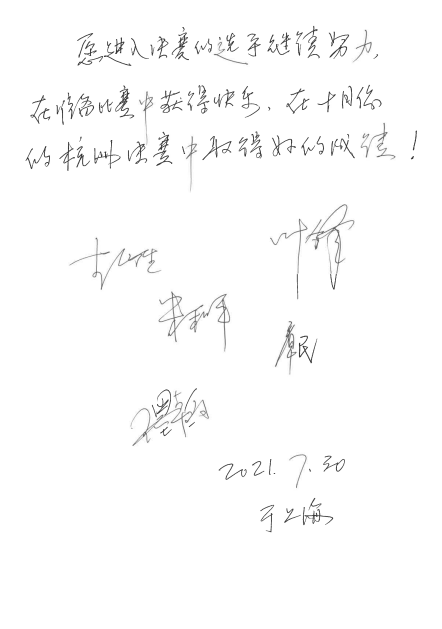 愿进入决赛的选手继续努力,
在准备比赛中获得快乐, 在十月份
的杭州决赛中取得好的成绩!
叶锋
朱和平
廖民
2021. 7. 30
于上海